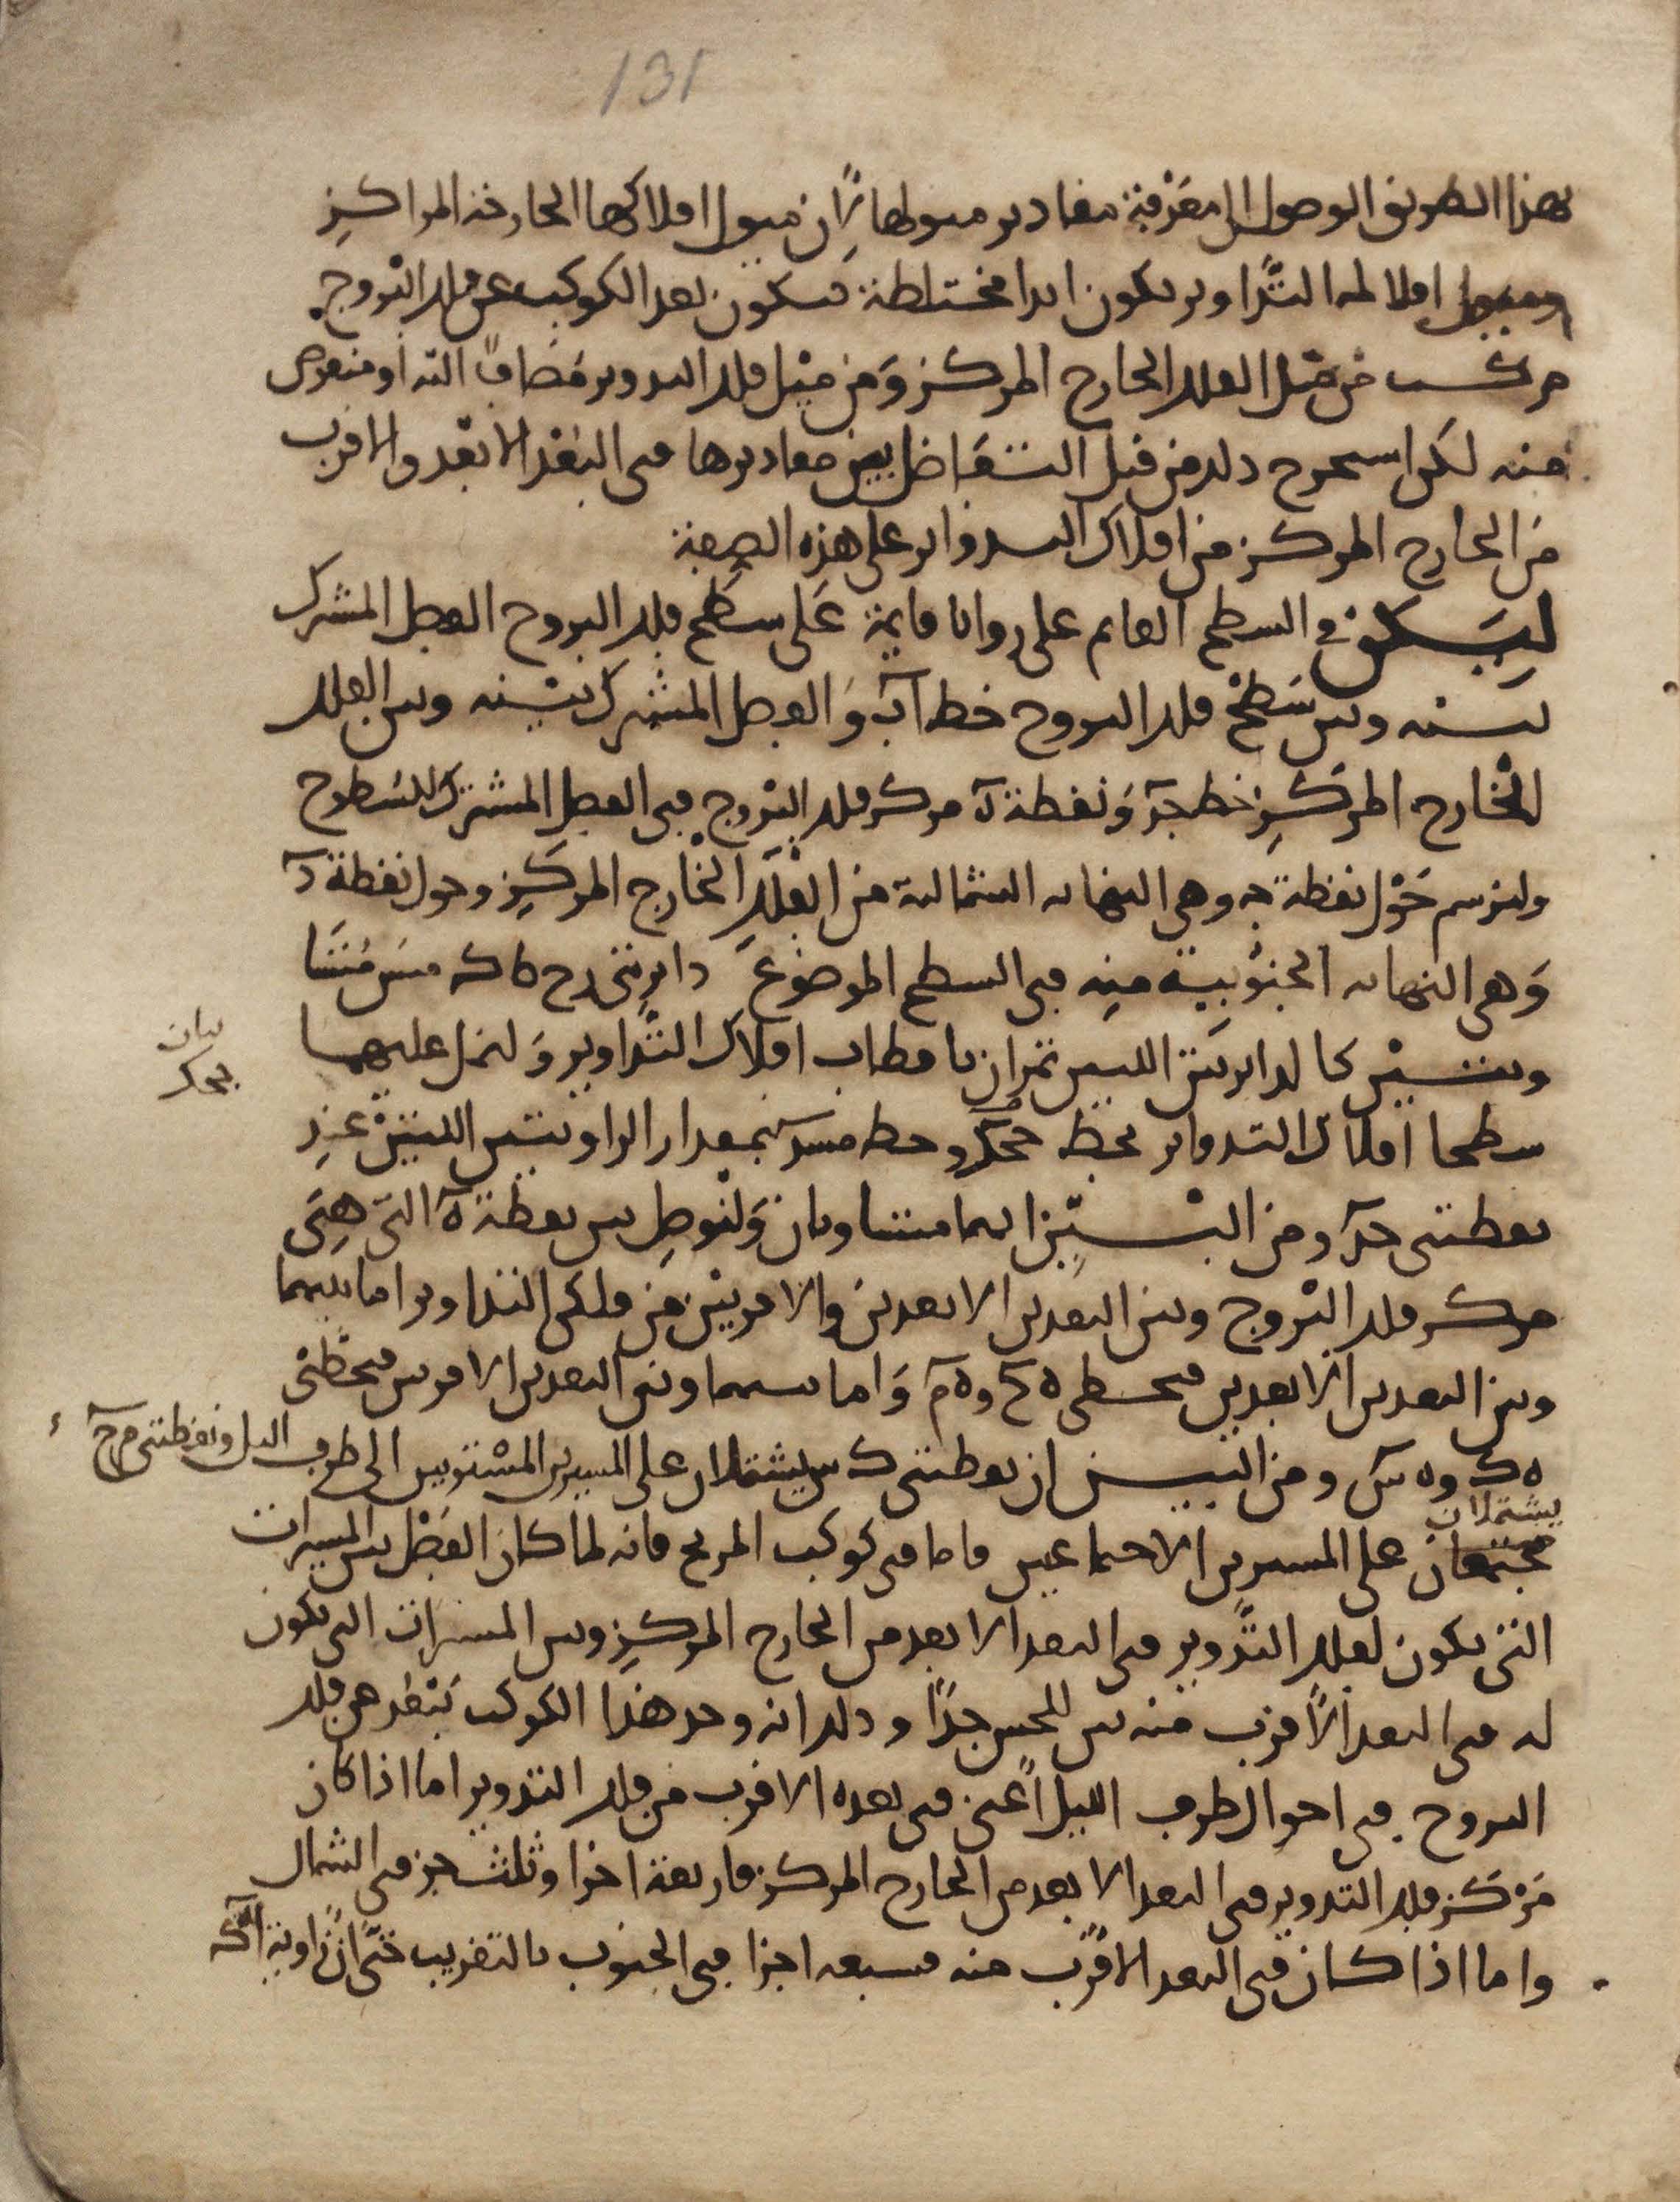 131
بهذا الطريق الوصول الى معرفة مقادير ميولها لان ميول افلاكها الخارجة المراكز
وميول افلاك التداوير يكون ابدا مختلطة فيكون بعد الكوكب عن فلك البروج
مركب من ميل الفلك الخارج المركز ومن ميل فلك التدوير مضاف اليه او منقوص
منه لكن استخرج ذلك من قبل التفاضل بين مقاديرها في البعد الابعد والاقرب
من الخارج المركز من افلاك التدوير على هذه الصفة
ليكن في السطح القايم على زوايا قايمة على سطح فلك البروج الفصل المشترك
بينه وبين سطح فلك البروج خط اب والفصل المشترك بينه وبين الفلك
الخارج المركز خط جد ونقطة ه مركز فلك البروج في الفصل المشترك للسطوح
ولنرسم حول نقطة ج وهي النهاية الشمالية من الفلك الخارج المركز وحول نقطة د
وهي النهاية الجنوبية منه في السطح الموضوع دايرتي زح طك
كالدايرتين اللتين تمران باقطاب افلاك التداوير ولنمل عليهما
سطحا افلاك التدوير بخط وخط بمقدار الزاويتين اللتين عند
نقطتي جد ومن البين انهما متساويان ولنوصل بين نقطة ه التي هي
مركز فلك البروج وبين البعدين الابعدين والاقربين من فلكي التداوير اما بينهما
وبين البعدين الابعدين فبخطي هح وهم واما بينهما وبين البعدين الاقربين فبخطي
هك وه س ومن البين ان نقطتي ك س يشتملان على المسيرين المستويين الى طرف الليل ونقطتي م ح
يشتملان
مجتمعان على المسيرين الاجتماعيين فاما في كوكب المريخ فانه لما كان الفضل بين المسيرات
التي يكون لفلك التدوير في البعد الابعد من الخارج المركز وبين المسيرات التي يكون
له في البعد الاقرب منه بين للحس جدا وذلك انه وجد هذا الكوكب يبعد عن فلك
البروج في احوال طرف الليل اعني في بعده الاقرب من فلك التدوير اما اذا كان
مركز فلك التدوير في البعد الابعد من الخارج المركز فاربعة اجزا وثلث جز في الشمال
واما اذا كان في البعد الاقرب منه فسبعة اجزا في الجنوب بالتقريب حتى ان زاوية اهك